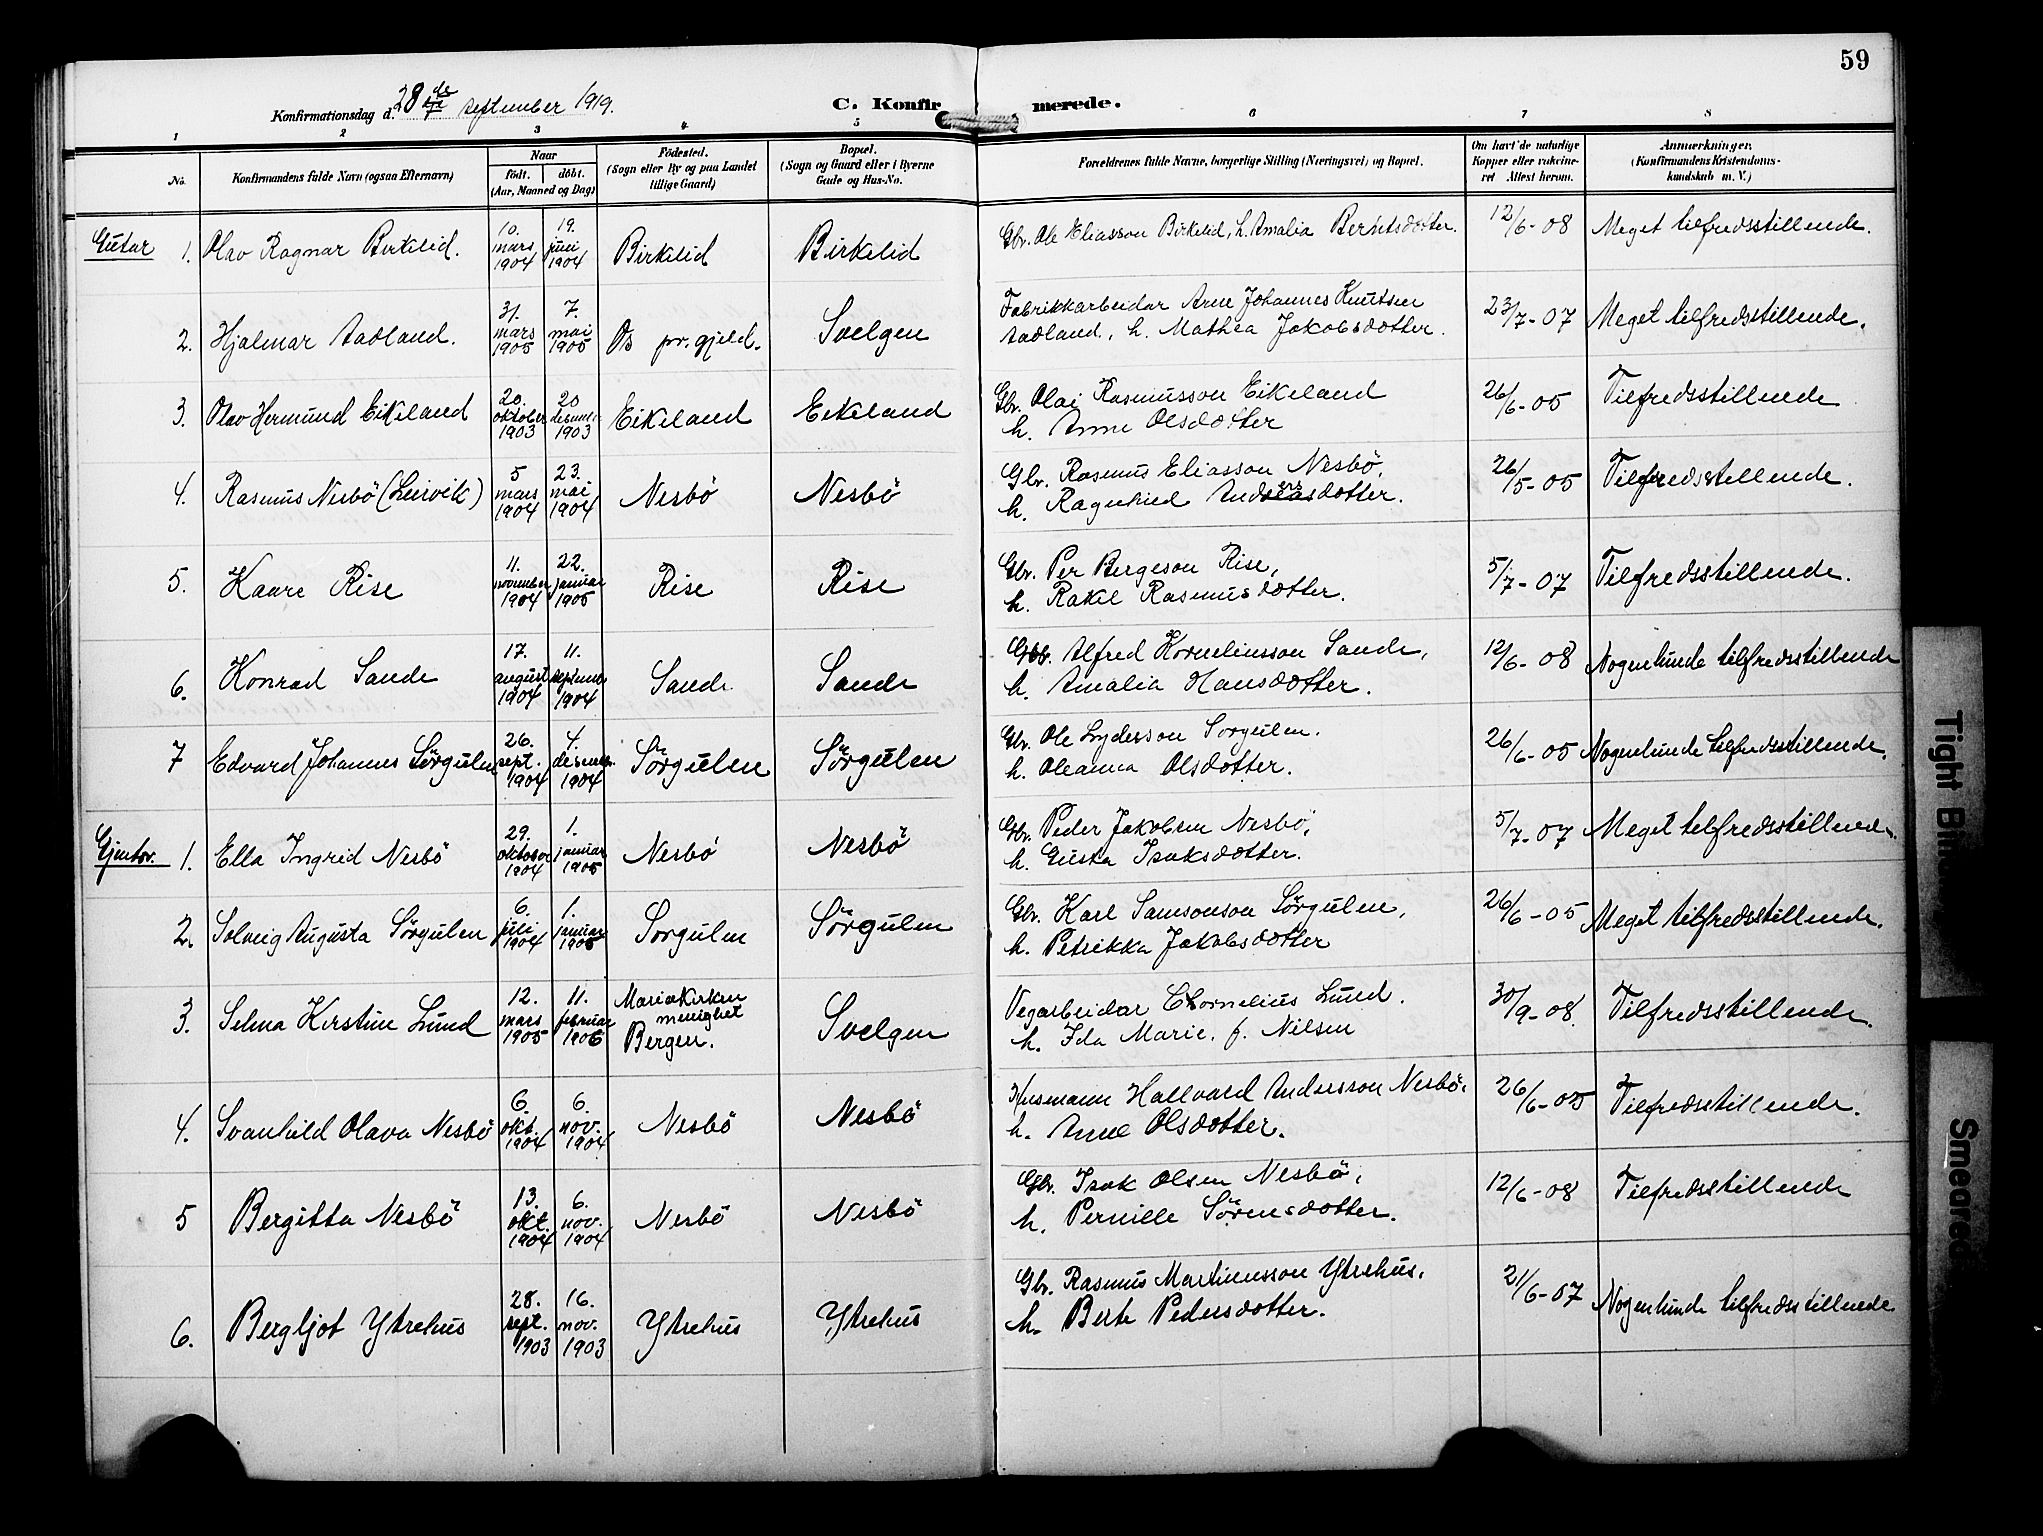 59
Konfirmationsdag d. 28de september 1919.
C. Konfirmerede.
1 2 3 4 5 6 7 8
No.
Konfirmandens fulde Navn (ogsaa Efternavn)
Naar
født. døbt.
(Aar, Maaned og Dag)
Fødested.
(Sogn eller By og paa Landet
tillige Gaard)
Bopæl.
(Sogn og Gaard eller i Byerne
Gade og Hus-No.
Forældrenes fulde Navne, borgerlige Stilling (Næringsvei) og Bopæl.
Om havt de naturlige
Kopper eller vakcine-
ret Attest herom.
Anmærkninger.
(Konfirmandens Kristendoms-
kundskab m. V.)
Gutar 1. Olav Ragnar Birkelid. 10. mars 1904 19. juni 1904 Birkelid Birkelid Gbr. Ole Eliasson Birkelid, h. Amalia Berntsdotter. 12/6-08 Meget tilfredsstillende.
2. Hjalmar Aadland. 31. mars 1905 7. mai 1905 Os pr. gjeld. Svelgen Fabrikkarbeidar Arne Johannes Knutsen
Aadland, h. Mathea Jakobsdotter. 23/7-07 Meget tilfredsstillende.
3. Olav Hermund Eikeland 20. oktober 1903 20 desem. 1903 Eikeland Eikeland Gbr. Olai Rasmusson Eikeland
h. Anne Olsdotter 26/6-05 Tilfredsstillende
4. Rasmus Nesbö (Leirvik) 5 mars 1904 23. mai 1904 Nesbö Nesbö Gbr. Rasmus Eliasson Nesbö,
h. Ragnhild Andersdotter. 26/5-05 Tilfredsstillende.
5. Kaare Rise 11. november 1904 22. januar 1905 Rise Rise Gbr. Per Bergeson Rise,
h. Rakel Rasmusdotter. 5/7-07 Tilfredsstillende.
6. Konrad Sande 17. august 1904 11. septemb. 1904 Sande Sande Gbr. Alfred Korneliusson Sande,
h. Amalia Hansdotter. 12/6-08 Nogenlunde tilfredsstillende
7 Edvard Johannes Sörgulen 26. sept. 1904 4. desember 1904 Sörgulen Sörgulen Gbr. Ole Lydersson Sorgulen.
h. Oleanna Olsdotter. 26/6-05 Nogenlunde tilfredsstillende.
Gjentor. 1. Ella Ingrid Nesbö 29. oktober 1904 1. januar 1905 Nesbö Nesbö Gbr. Peder Jakobsen Nesbö,
h. Gusta Isaksdotter. 5/7-07 Meget tilfredsstillende.
2. Solveig Augusta Sörgulen 6. juli 1904 1. januar 1905 Sorgulen Sörgulen Gbr. Karl Samsonson Sörgulen,
h. Petrikka Jakobsdotter 26/6-05 Meget tilfredsstillende.
3. Selma Kirstine Lund 12. mars 1905 11. februar 1906 Mariakirken
menighet
Bergen. Svelgen Vegarbeidar Chornelius Lund.
h. Ida Marie. f. Nilsen 30/9-08. Tilfredsstillende.
4. Svanhild Olava Nesbö 6. okt. 1904 6. nov. 1904 Nesbö Nesbö Husmann Hallvard Andersson Nesbö,
h. Anne Olsdotter. 26/6-05 Tilfredsstillende.
5 Bergitta Nesbö 13. okt. 1904 6. nov. 1904 Nesbö Nesbö Gbr. Isak Olsen Nesbö,
h. Pernille Sörensdotter. 12/6-08 Tilfredsstillende
6. Bergljot Ytrehus 28. sept. 1903 16. nov. 1903 Ytrehus Ytrehus Gbr. Rasmus Martinusson Ytrehus,
h. Berte Pedersdotter. 21/6-07 Nogenlunde tilfredsstillende
Tight
Smeared